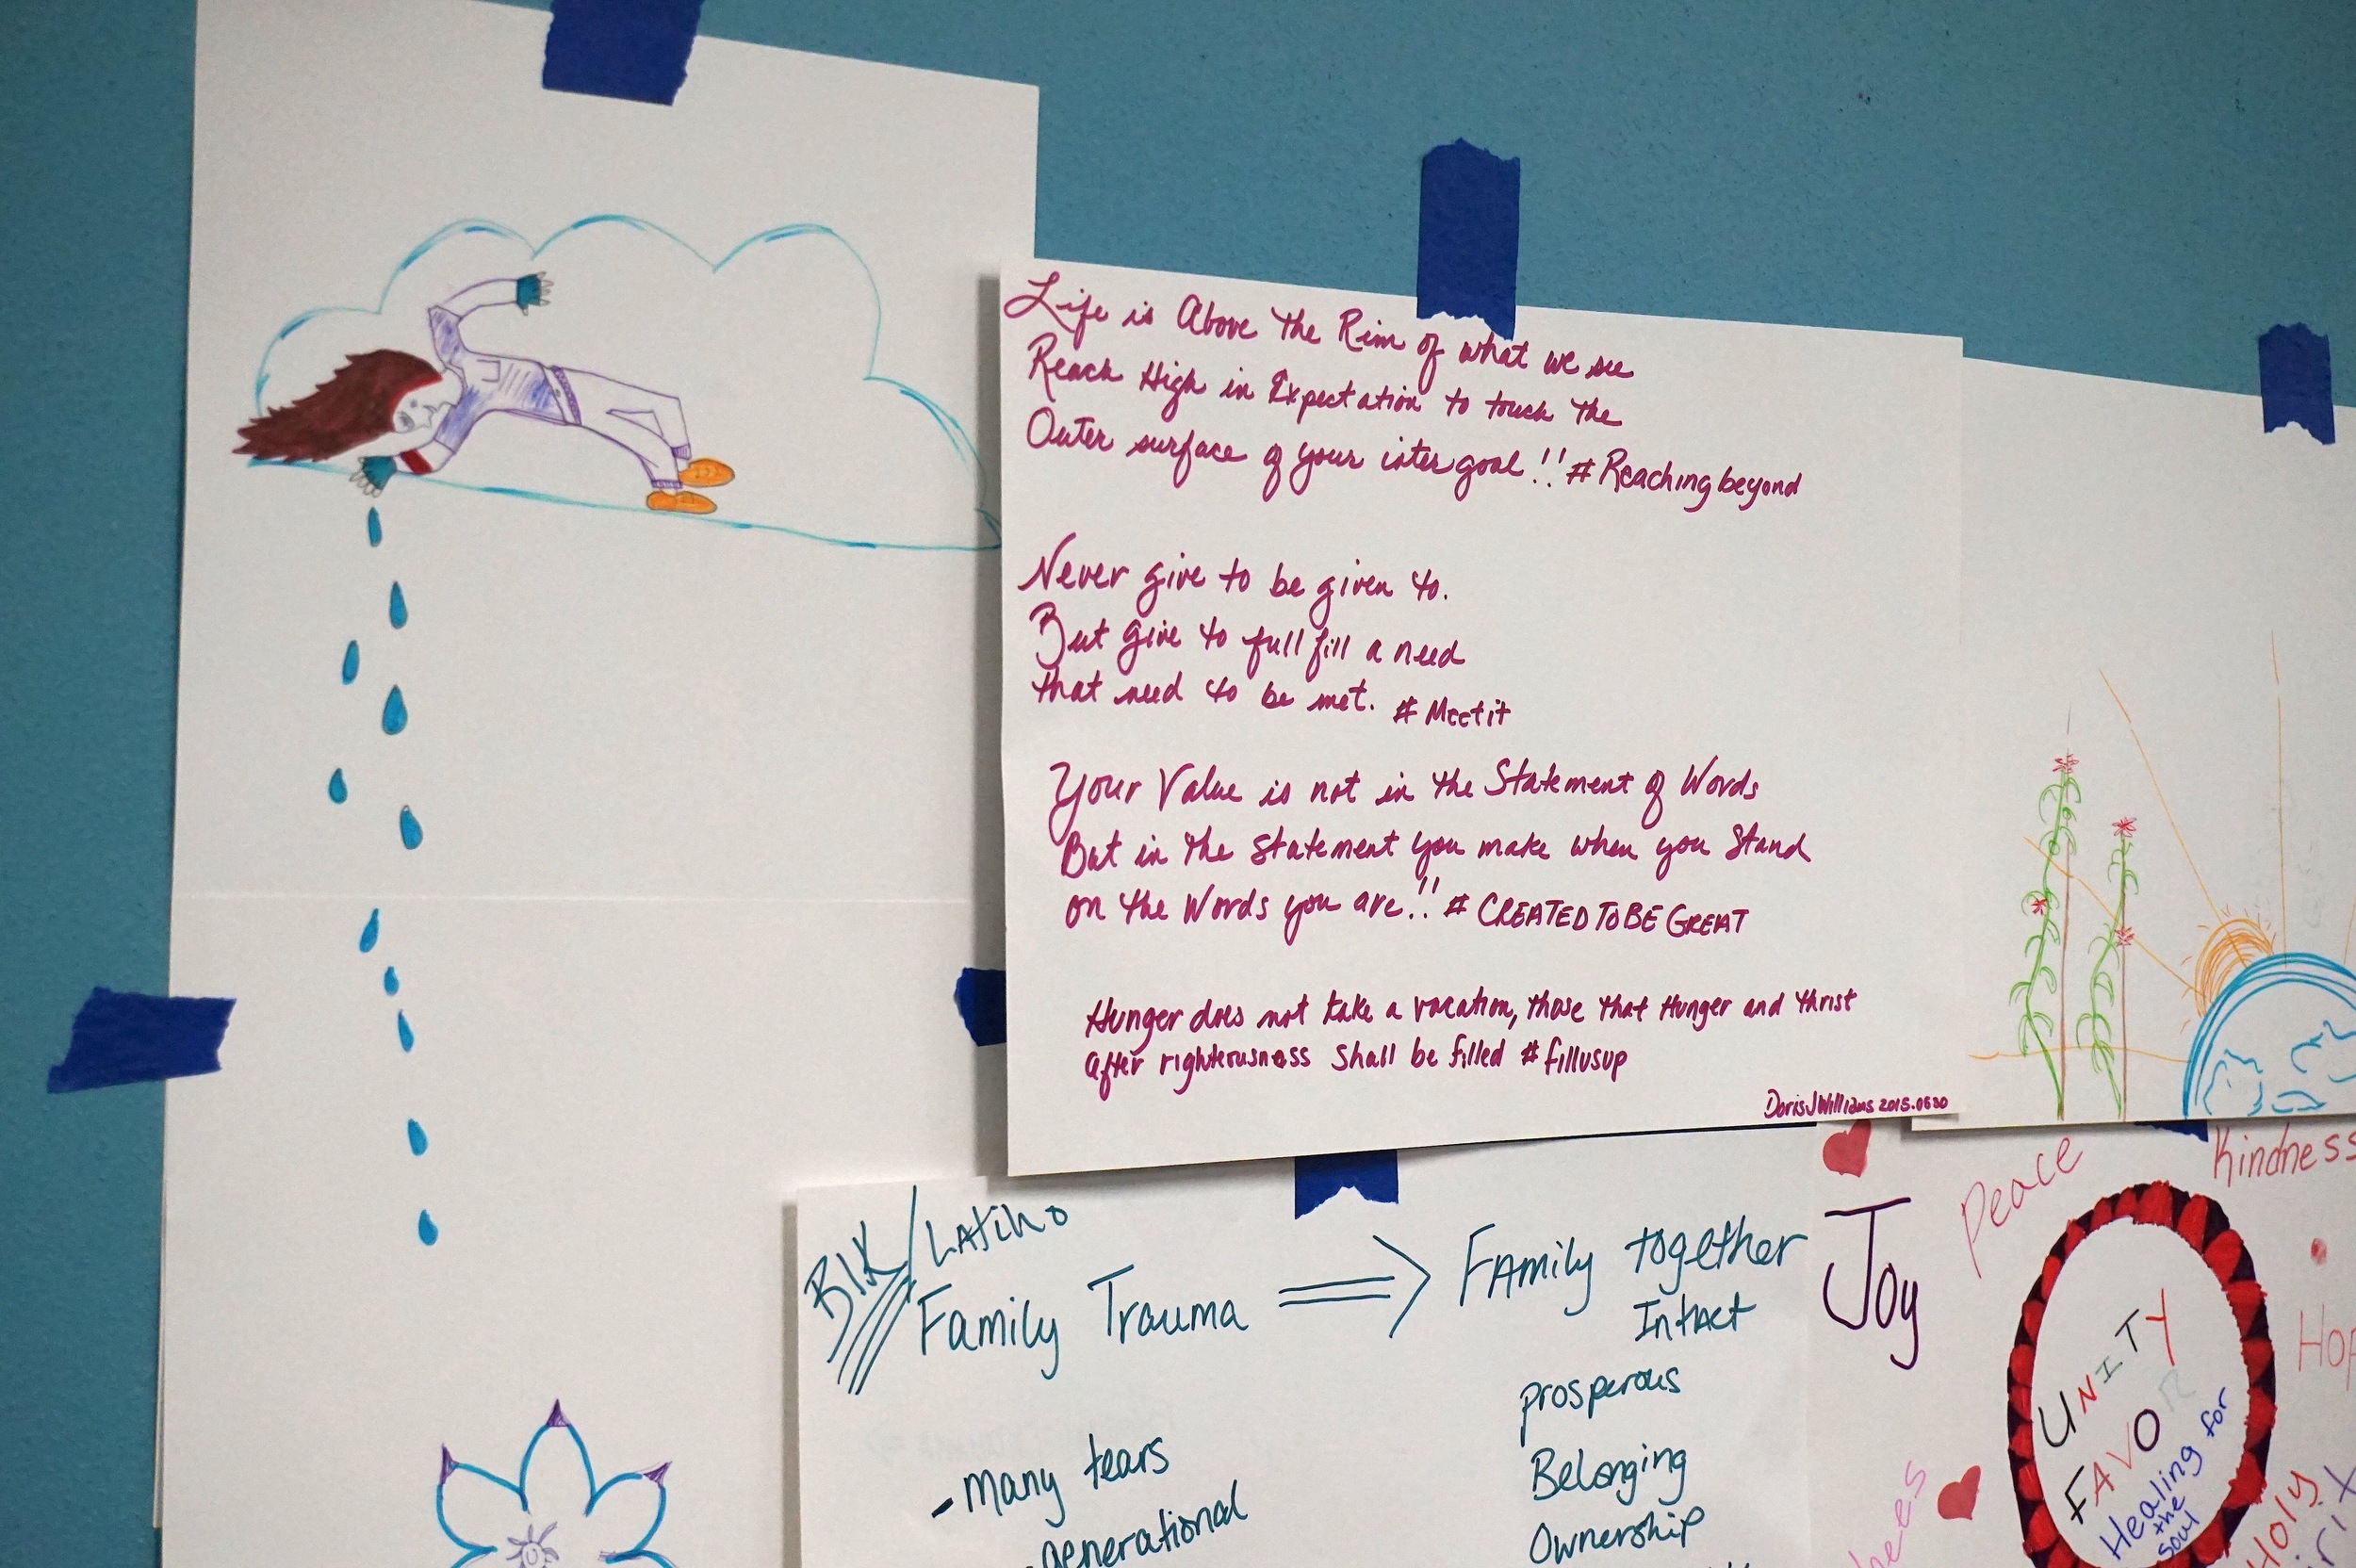 Life is Above The Rim of what we see
Reach High in Expectation to touch The
Outer surface of your inter goal!! #Reachingbeyond
Never give to be given to.
But give to full fill a need
that need to be met. #Meetit
Your Value is not in the Statement of Words
But in The Statement you make when you Stand
on the Words you are!! # CREATEDTOBEGREAT
Hunger does not take a vacation, those that Hunger and thrist
After righterousness shall be filled #fillusup
DorisJWilliams 2015.0530
Blk/Latino
Family Trauma
- many tears
- generational
Family together
Intact
prosperous
Belonging
Ownership
Joy
Peace
Kindness
UNITY
FAVOR
Healing for
the
soul
Holy